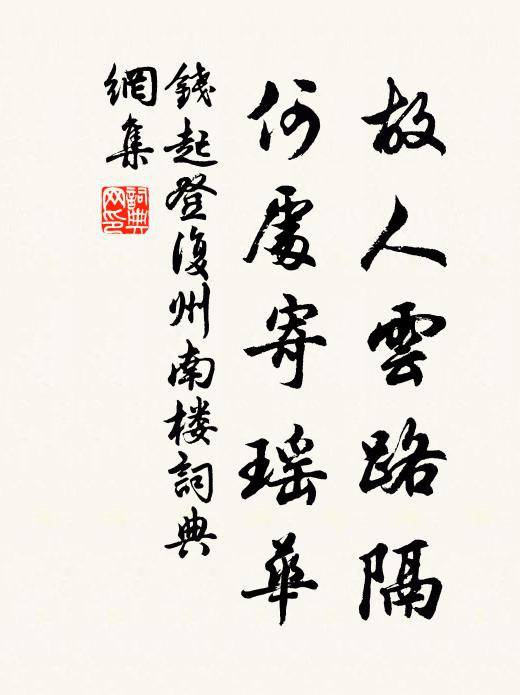 故人雲路隔
何處寄瑶華
錢起登復州南楼詞典
網集
詞典
网印